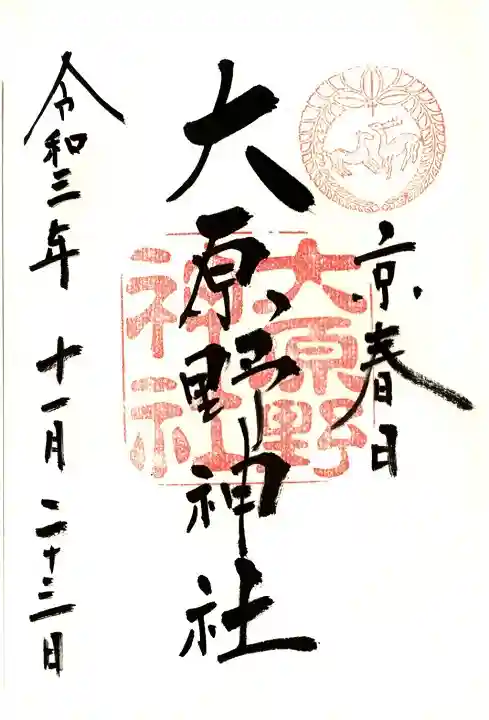 京春日
大原野神社
令和三年 十一月 二十三日
大原野
神社